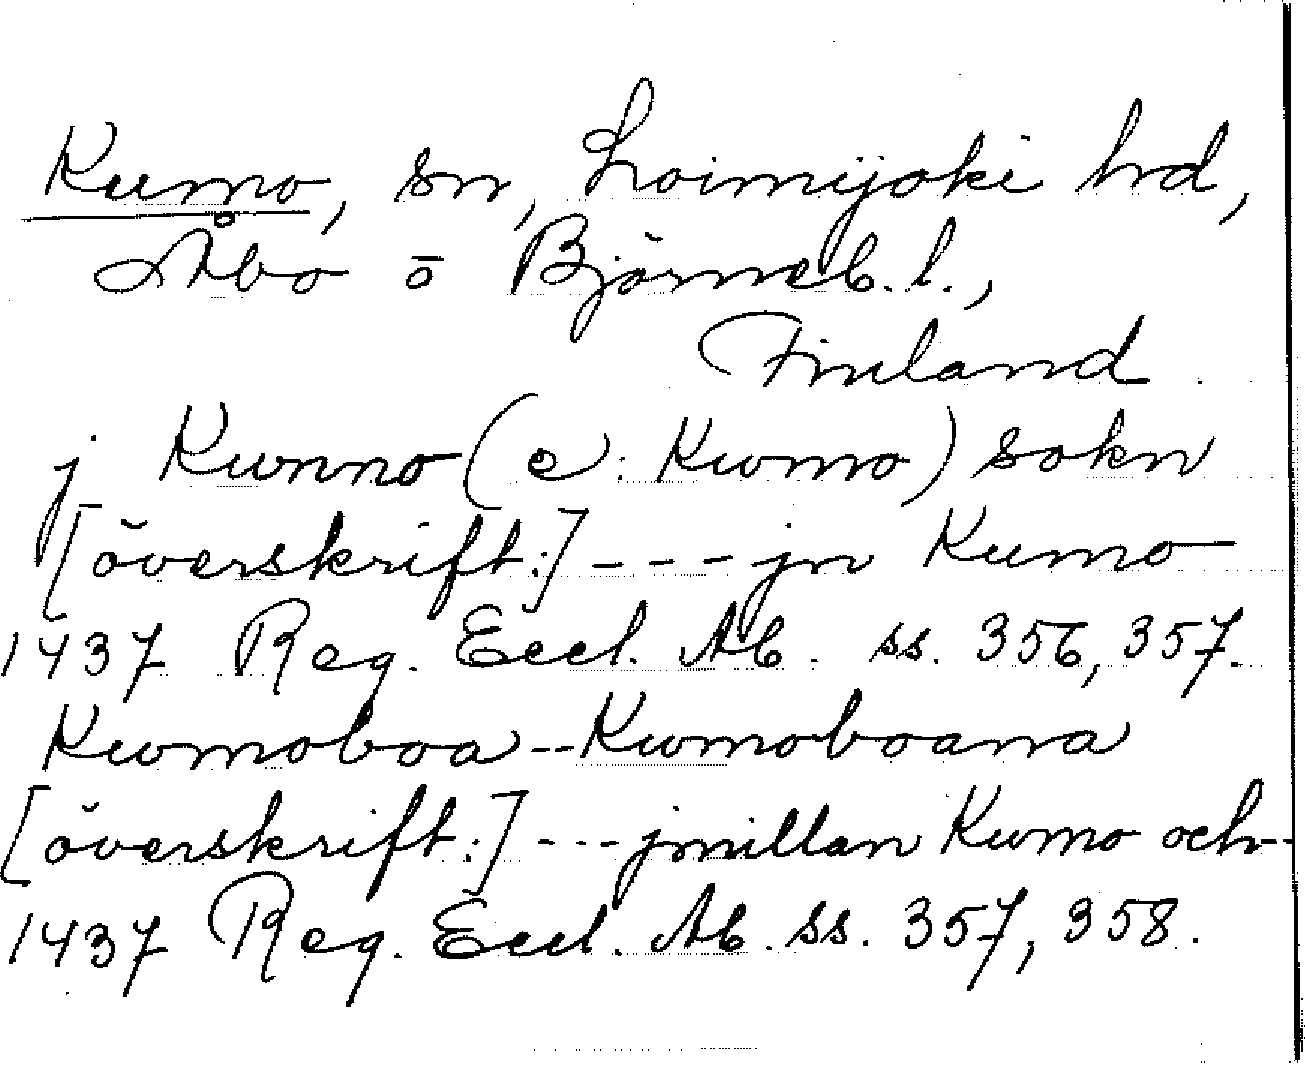 Kumo, sn, Loimijoki hrd,
Åbo o Björneb. l.,
Finland.
j Kwmo (e: Kwmo) sokn
[överskrift:] --- jn Kumo
1437 Reg. Eccl. Ab. ss. 356, 357.
Kwmoboa -- Kwmoboana
[överskrift:] --- jmillan Kwmo och --
1437 Reg. Eccl. Ab. ss. 357, 358.